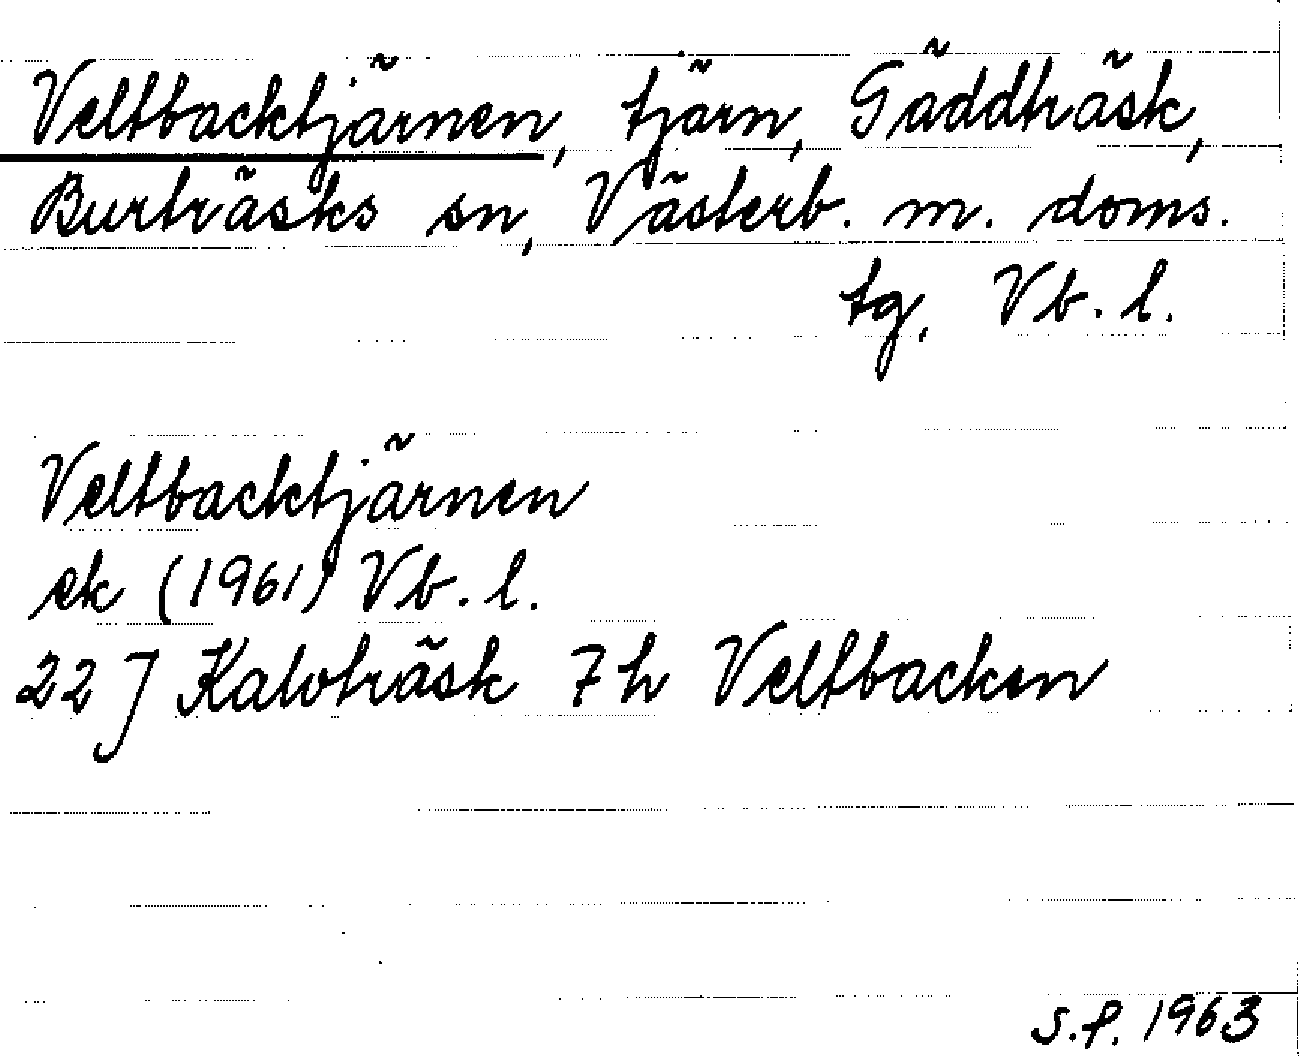 Veltbacktjärnen, tjärn, Gäddträsk,
Burträsks sn, Västerb. m. doms.
tg. Vb. l.
Veltbacktjärnen
ek (1961) Vb. l.
22 J Kalvträsk 7 h Veltbacken
S.P. 1963